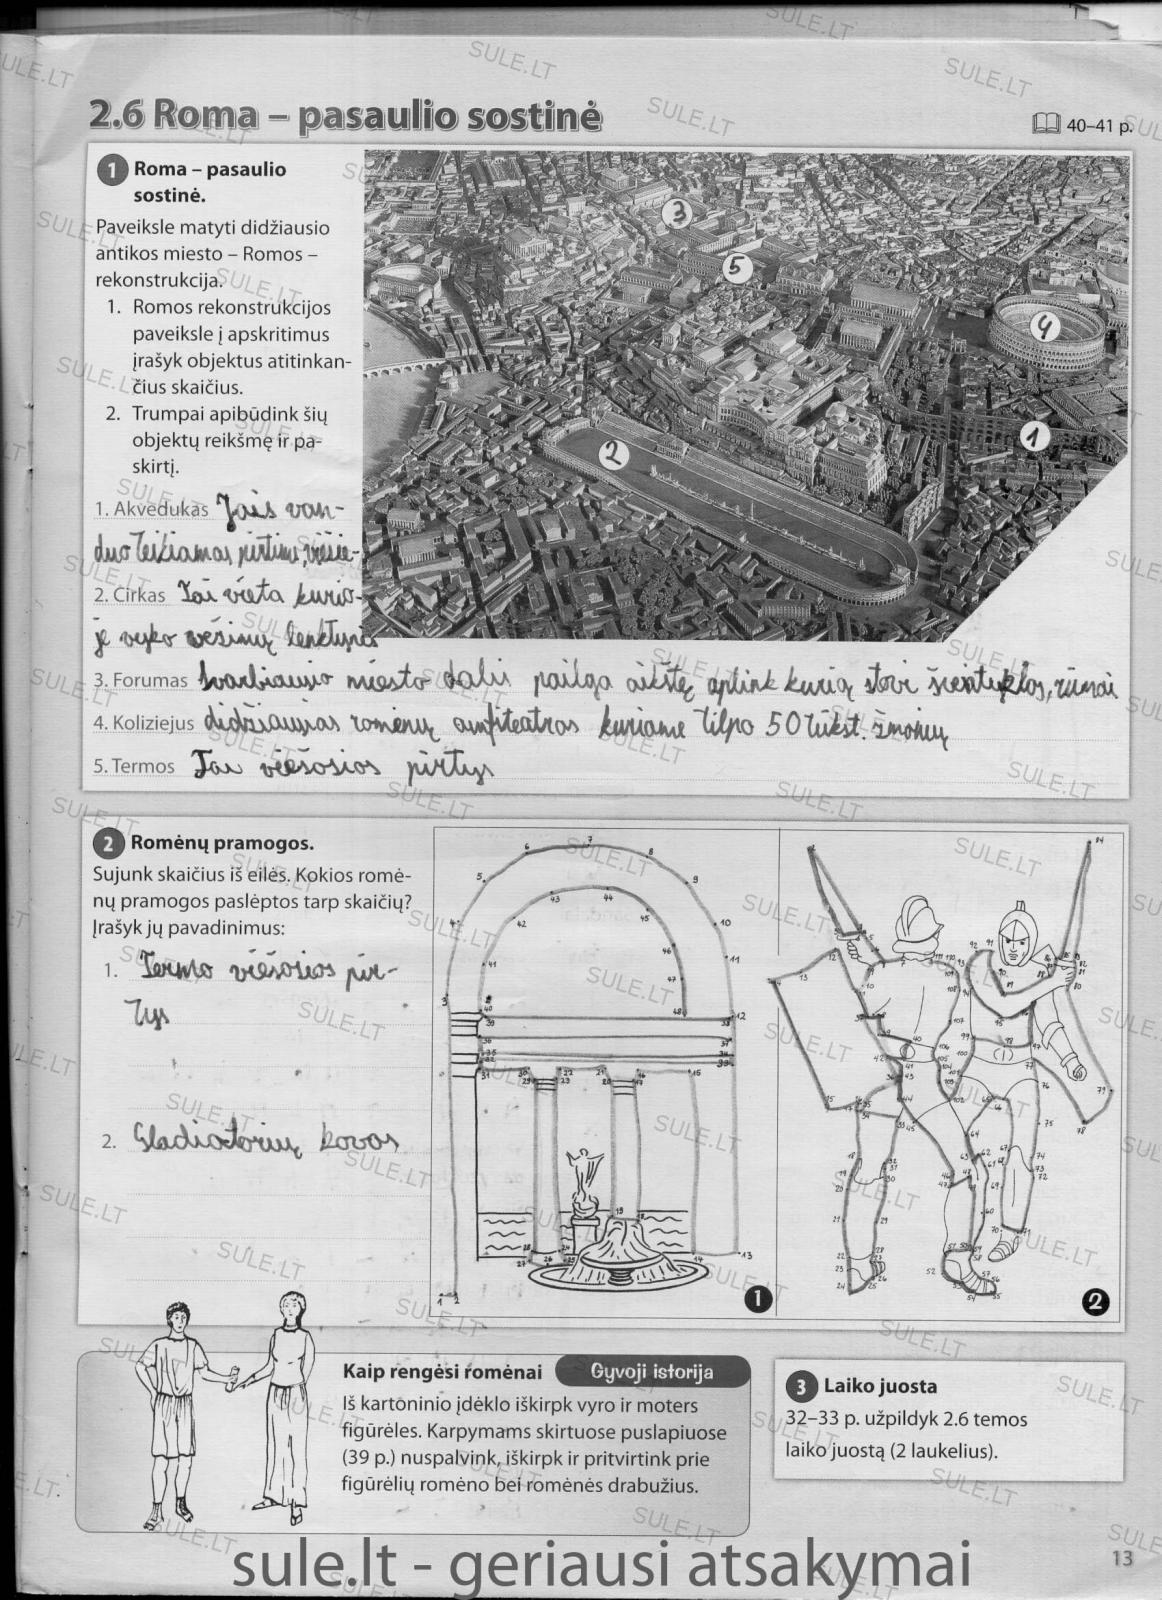 2.6 Roma – pasaulio sostinė
40–41 p.
1 Roma – pasaulio
sostinė.
Paveiksle matyti didžiausio
antikos miesto – Romos –
rekonstrukcija.
1. Romos rekonstrukcijos
paveiksle į apskritimus
įrašyk objektus atitinkan-
čius skaičius.
2. Trumpai apibūdink šių
objektų reikšmę ir pa-
skirtį.
3
5
4
1
2
1. Akvedukas Jais van-
duo teikiamas pirtims, viešie-
2. Cirkas Tai vieta kurio-
je vyko vėžimų lenktynės
3. Forumas svarbiausio miesto dalis pailga aikštę aplink kurią stovi šventyklos, rūmai
4. Koliziejus didžiausias romėnų amfiteatras kuriame tilpo 50 tūkst. žmonių
5. Termos Tai viešosios pirtys
2 Romėnų pramogos.
Sujunk skaičius iš eilės. Kokios romė-
nų pramogos paslėptos tarp skaičių?
Įrašyk jų pavadinimus:
1. Termo viešosios pir-
tys
2. Gladiatorių kovos
1
2
Kaip rengėsi romėnai Gyvoji istorija
Iš kartoninio įdėklo iškirpk vyro ir moters
figūrėles. Karpymams skirtuose puslapiuose
(39 p.) nuspalvink, iškirpk ir pritvirtink prie
figūrėlių romėno bei romėnės drabužius.
3 Laiko juosta
32–33 p. užpildyk 2.6 temos
laiko juostą (2 laukelius).
13
sule.lt - geriausi atsakymai
SULE.LT